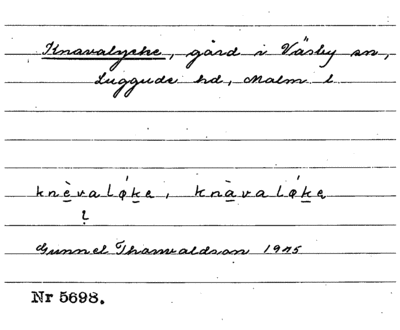 Knavalycke, gård i Väsby sn,
Luggude hd, Malm l
knèvaløkę, knàvaløkę
?
Gunnel Thorvaldson 1945
Nr 5698.